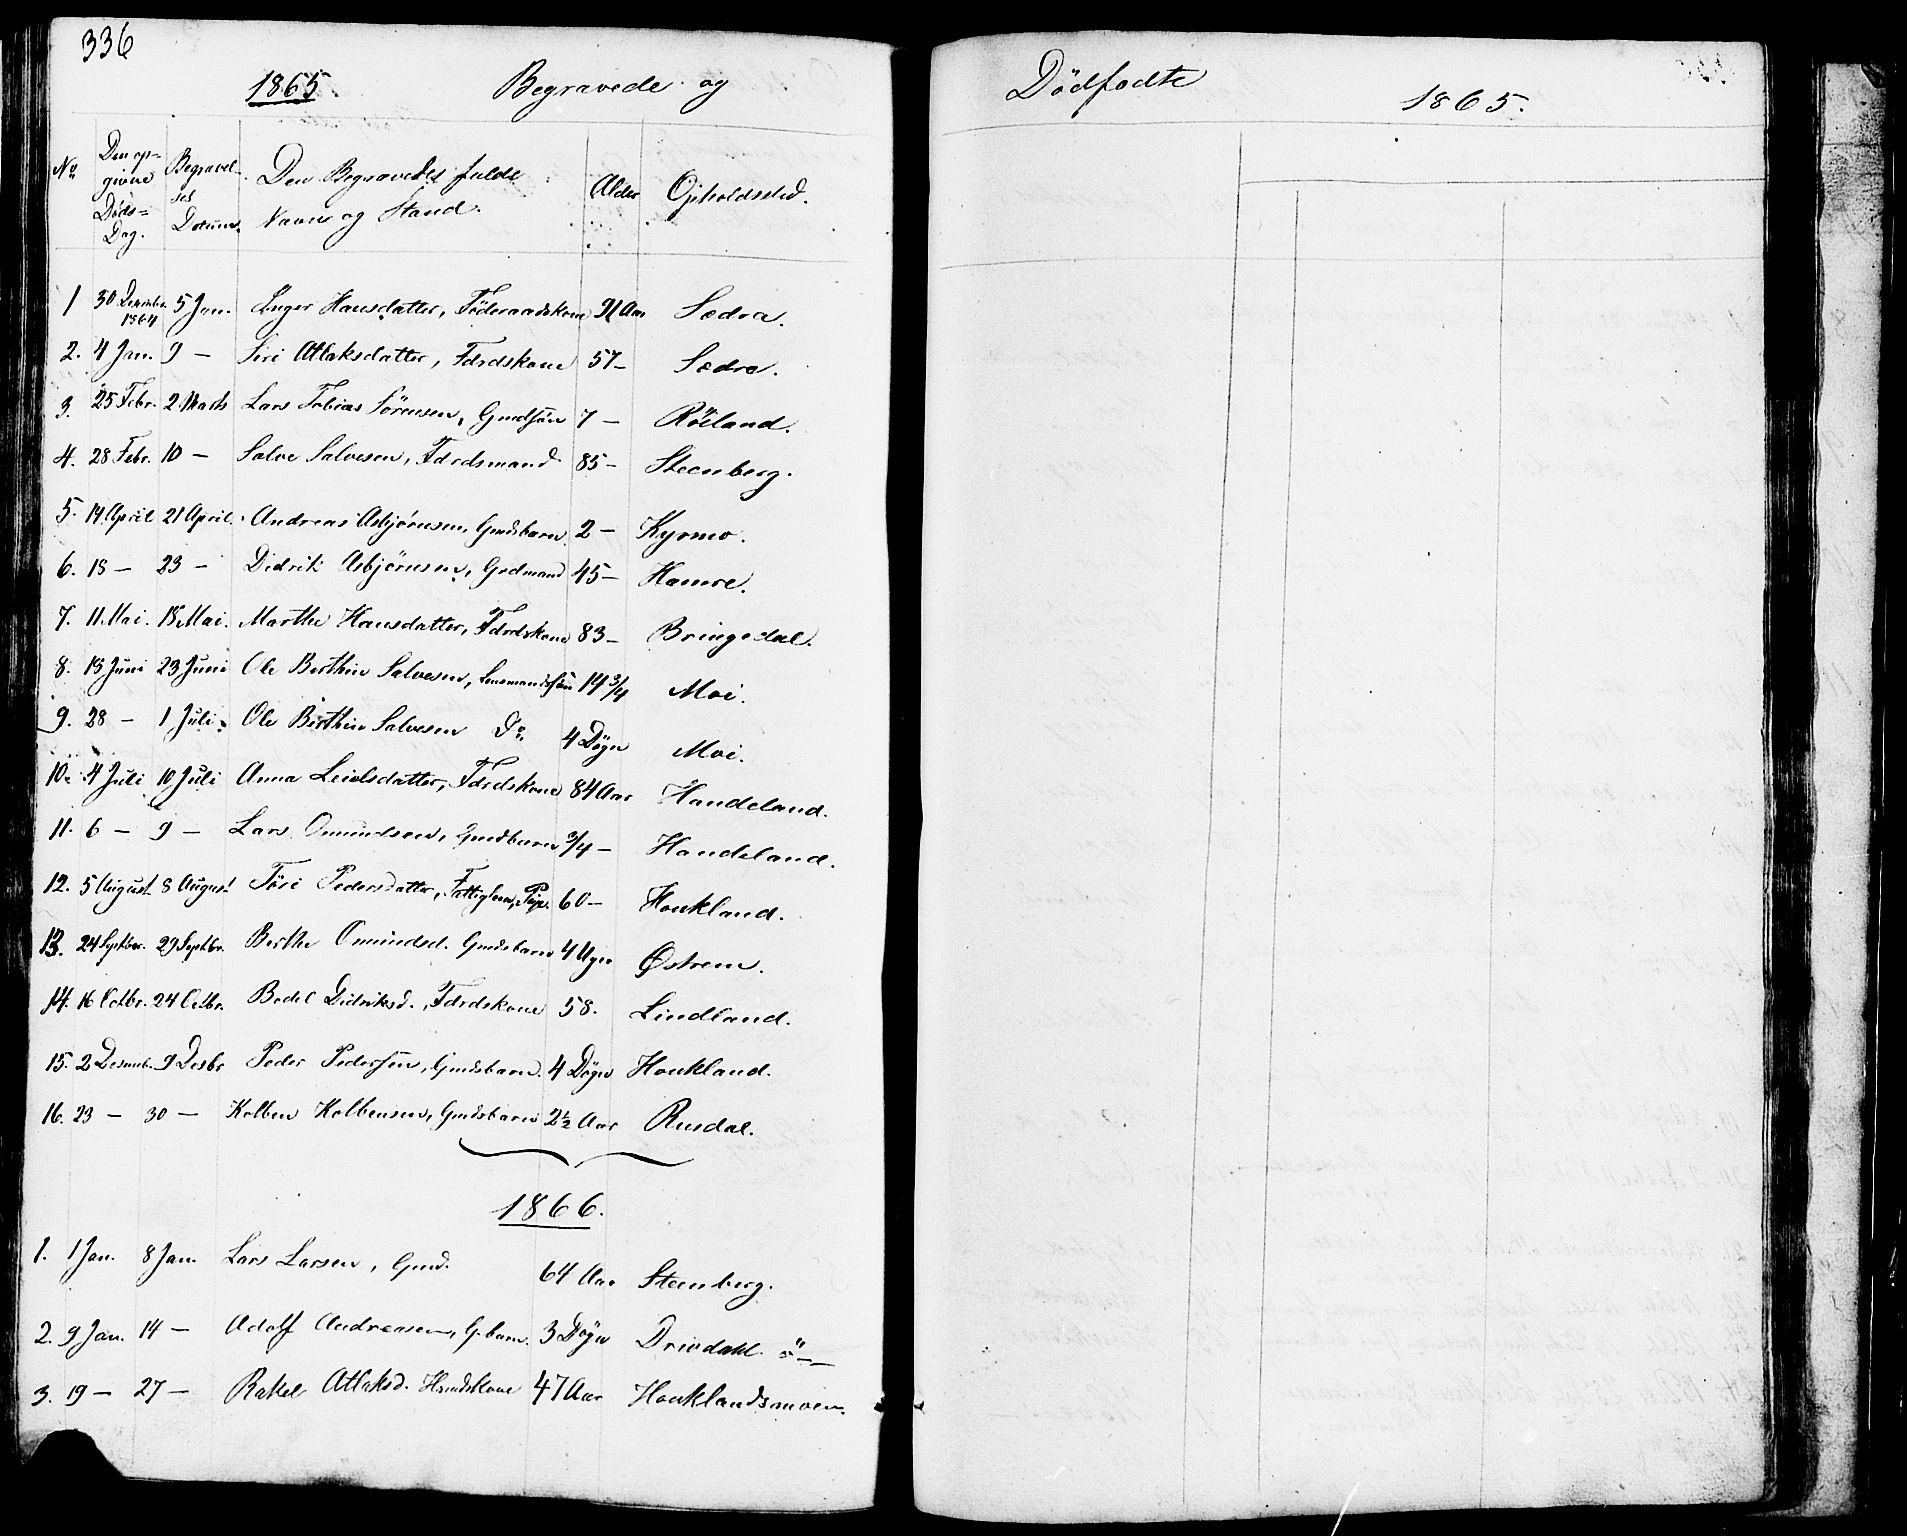 336
1865 Begravede og
Dödfødte
1865.
No Den op- Begravel- Den Begravedes fulde Alder Opholdssted.
givne ses Navn og Stand.
Døds- Datum.
Dag.
1 30 Decembr. 5 Jan. Inger Hansdatter, Föderaadskone 91 Aar Sædra.
1864
2. 4 Jan. 9 — Siri Atlaksdatter, Fdrdskone 57 — Sædra.
3. 25 Febr. 2 Marts Lars Tobias Sörensen, Gmdsön 7 — Röiland.
4. 28 Febr. 10 — Salve Salvesen, Fdrdsmand 85 — Steenberg.
5. 14 April 21 April. Andreas Asbjørnsen, Gmdsbarn 2 — Kyrmo.
6. 18 — 23 — Didrik Asbjørnsen, Grdmand 45 — Hamre.
7. 11 Mai. 18 Mai. Marthe Hansdatter, Fdrdskone 83 — Bringedal.
8. 13 Juni 23 Juni Ole Berthin Salvesen, Lensmandssön 14 3/4 Moi.
9. 28 — 1 Juli. Ole Berthin Salvesen Do. 4 Døgn Moi.
10. 4 Juli 10 Juli Anna Leielsdatter, Fdrdskone 84 Aar Handeland.
11. 6 — 9 — Lars Omundsen, Gmdbarn 3/4 — Handeland.
12. 5 August 8 August Töri Pedersdatter, Fattiglem, Pige. 60 — Houkland.
13. 24 Septbr. 29 Septbr. Berthe Omundsd. Gmdsbarn 4 Uger Østrem.
14. 16 Octbr. 24 Octbr. Bodel Didriksd., Fdrdskone 58. Lindland.
15. 2 Decemb. 9 Decbr Peder Pedersen, Gmdsbarn. 4 Døgn Houkland.
16. 23 — 30 — Kolben Kolbensen, Gmdsbarn 2 1/2 Aar Rusdal.
1866.
1. 1 Jan. 8 Jan. Lars Larsen, Gmd. 64 Aar Steenberg.
2. 9 Jan. 14 — Adolf Andreasen, G. barn. 3 Døgn Drivdahl. ö —
3. 19 — 27 — Rakel Atlaksd. Huusdskone 47 Aar Houklandsmoen.